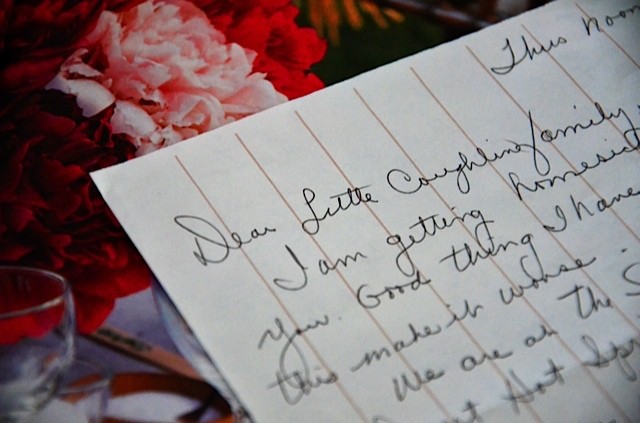 Thurs noon
Dear Little Coughlin family,
I am getting homesick
you. Good thing I have
this make it worse.
We are at the S
Hot Spr